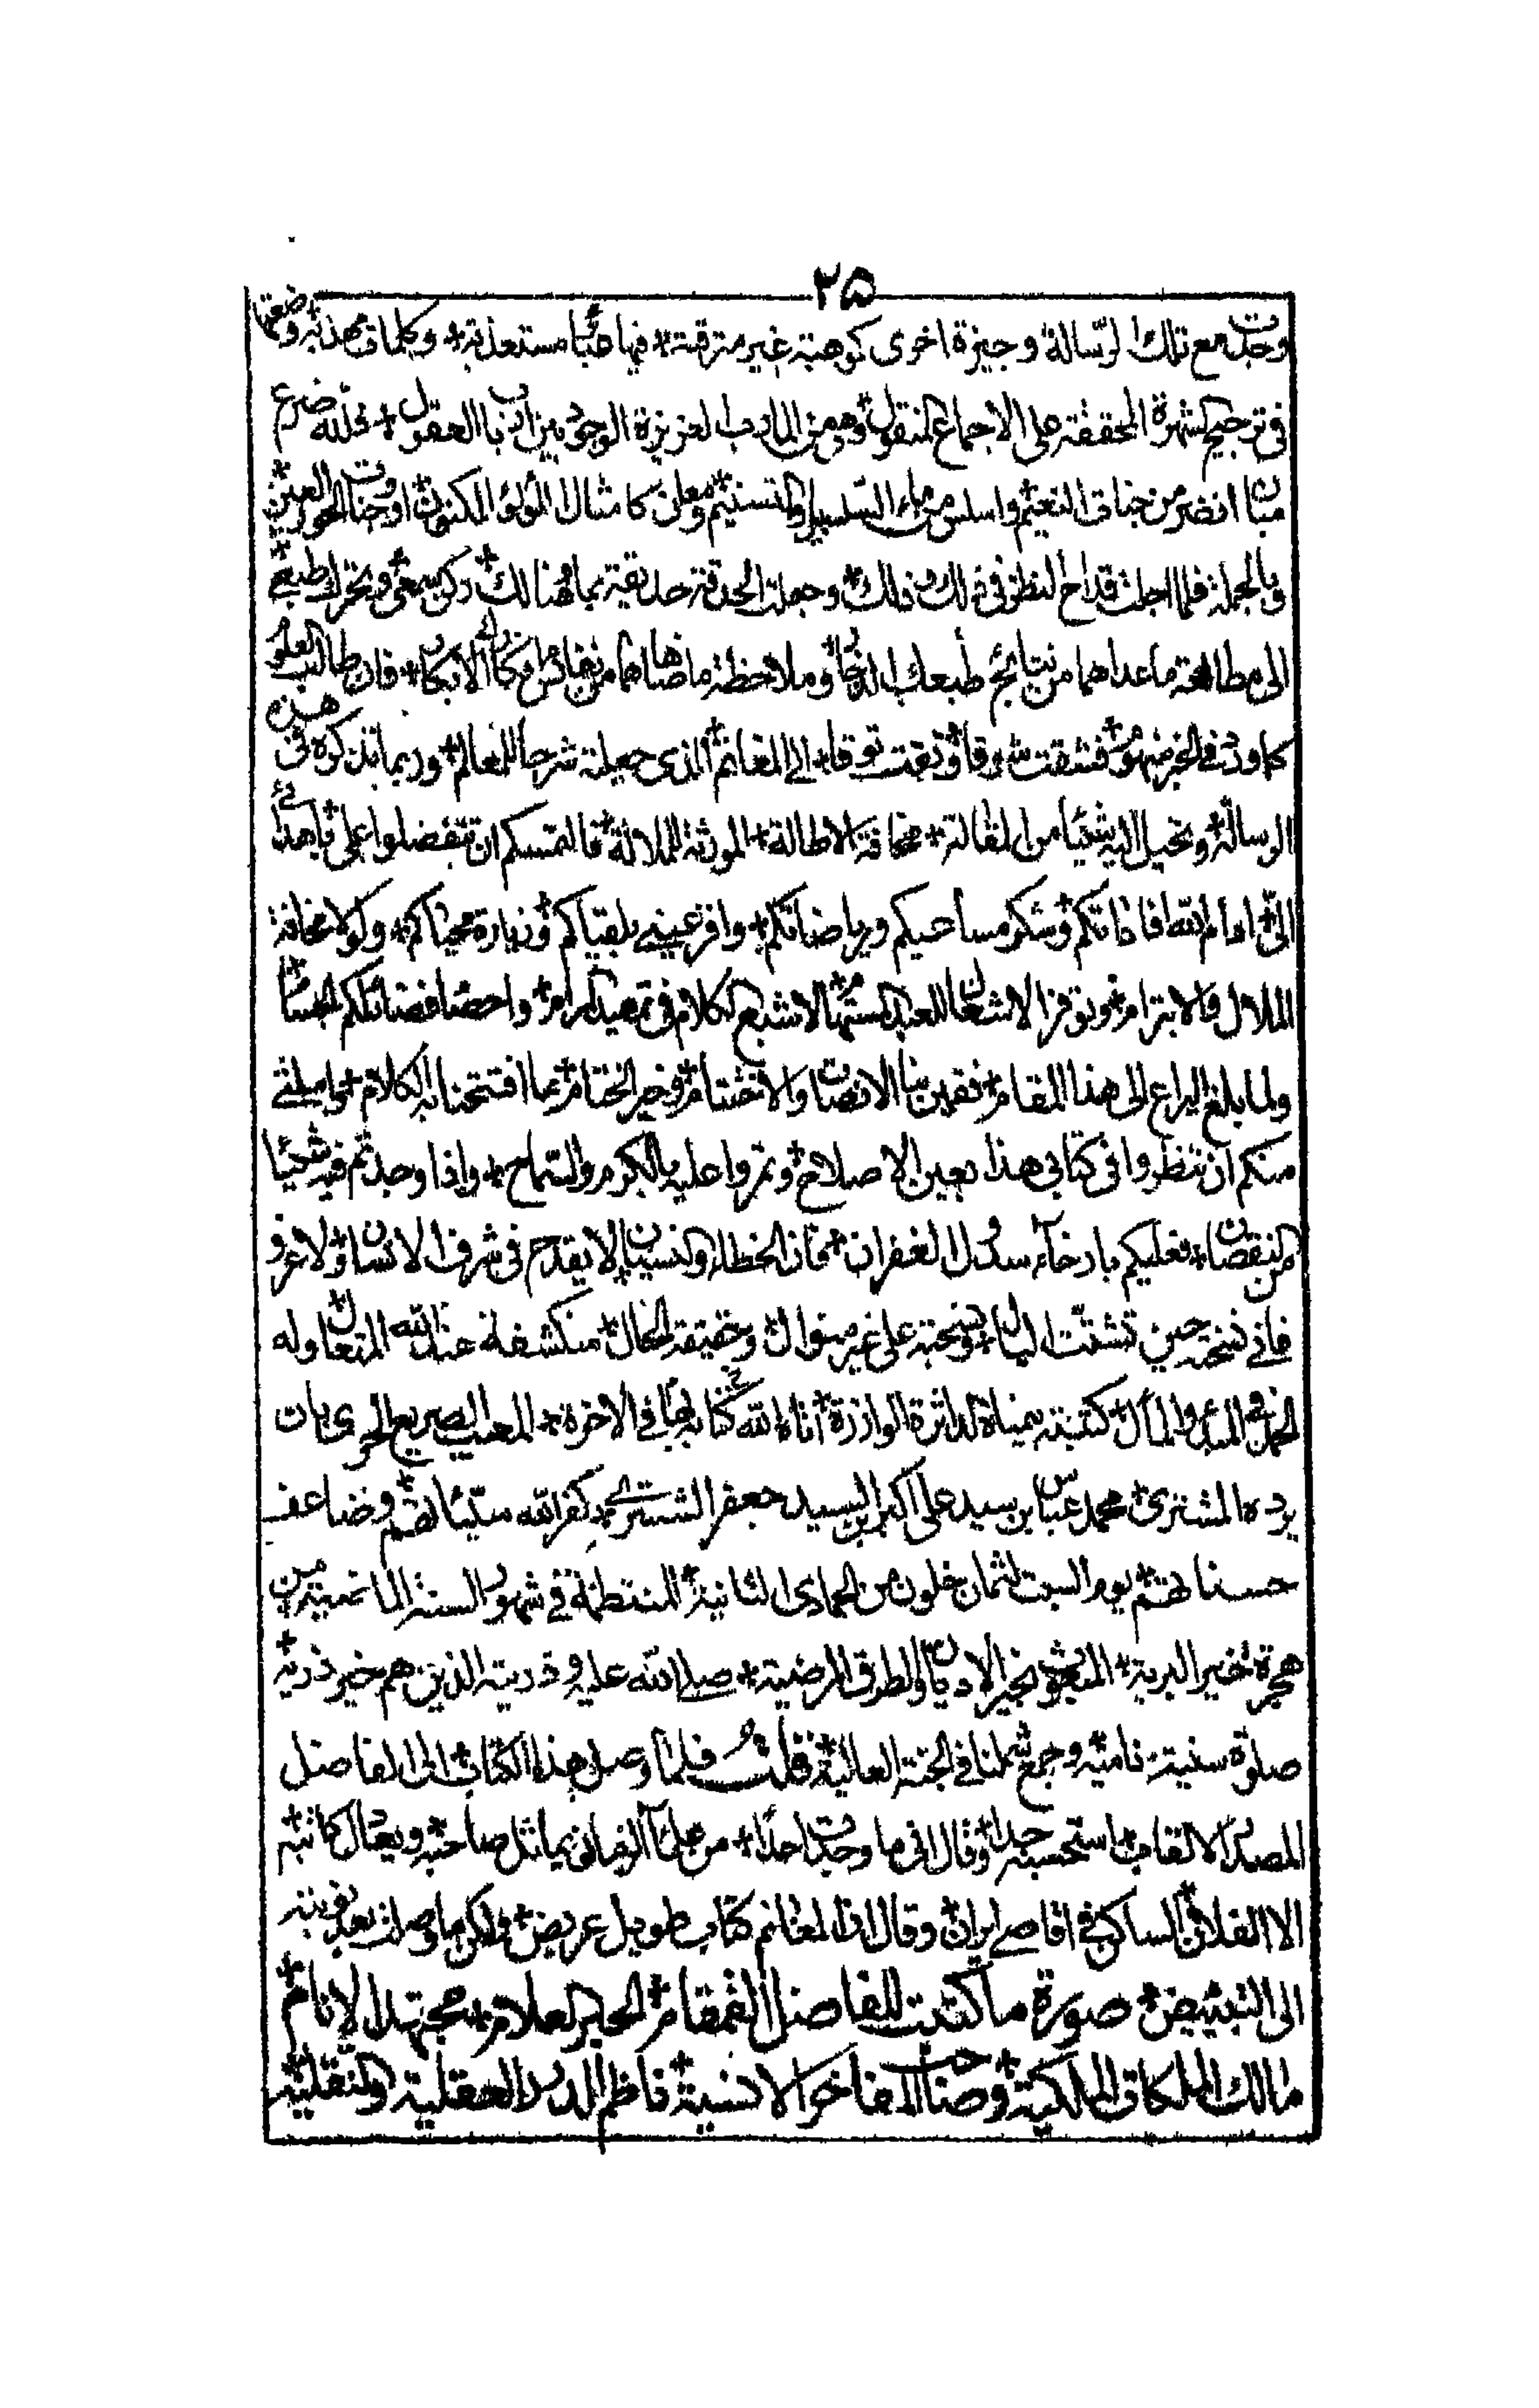 ٢٥
وجدت مع تلك الرّسالة وجيزة اخرى كموهبة غير مترقبة * فيها مستعذبة * وكلمات مهذبة وضعتها
فى ترجيح الشهرة المحققة على الاجماع المنقول * وهى من المآدب العزيزة الوجود بين ارباب العقول * فلله ضرع
مبان انضر من جنات النعيم * واسلس من ماء السلسبيل والتسنيم * ومعان كامثال اللؤلؤ المكنون * او وجنات الحور العين *
وبالجملة فلما اجلت قداح النظر فى ذلك وذلك * وجعلت الحدقة حديقة بما هنالك * وتحرك طبعى
الى مطالعة ما عداهما من نتايج طبعك الزخار * وملاحظة ما ضاهاهما من نفائس الابكار * فان طالب العلوم
كما ورد فى الخبر منهوم * فشقت شوقا وتقت توقا * الى المغانم * الذى جعلته شرحا للمعالم * وربما تذكره فى هذه
الرسالة * وتحيل اليه شيئا من المقالة * مخافة الاطالة * المورثة للملالة * فالتمسكم ان تتفضلوا على باهدائه
الىّ * ادام الله افاداتكم * وشكر مساعيكم ورياضاتكم * واقر عينى بلقياكم * وزيارة محياكم * ولولا مخافة
الملال والابترام * وتوفر الاشغال للعبد المستهام * لاشبع الكلام فى تمهيد المرام * واحصا فضائلكم الجسام *
ولما بلغ اليراع الى هذا المقام * فقمين بنا الانصات والاختتام * وخير الختام * بما افتتحنا به الكلام *
منكم ان تنظروا فى كتابى هذا بعين الاصلاح * وتمروا عليه بالكرم والسماح * واذا وجدتم فيه شيئا
من النقصان * فعليكم بارخاء سدول الغفران * فان الخطاء والنسيان * لا يقدح فى شرف الانسان * ولا غرو
فانى نمقته حين تشتت البال * ونسجته على غير منوال * وحقيقة الحال * منكشفة عند الله المتعال * وله
الحمد فى المبدا والمآل * كتبته بيمناه الداثرة الوازرة * اتاه الله كتابه بها فى الاخرة *
محمد عباس بن سيد على اكبر ابن السيد جعفر الششترى كفر الله سيئاتهم * وضاعف
حسناتهم * يوم السبت لثمان خلون من الجمادى الثانية * المنتظمة فى شهور السنة الماضية * من
هجرة خير البرية * المبعوث بخير الاديان والطرق المرضية * صلى الله عليه وذريته الذين هم خير ذرية *
صلوة سنية نامية * وجمع شملنا فى الجنة العالية * قلت فلما وصل هذا الكتاب الى الفاضل
المصدر الالقاب * استحسنه جدا * وقال انى ما وجدت احدا * من علماء الزمان يماثل صاحبه ويعادل كاتبه *
الا الفلانى * الساكن فى اقاصى ايران * وقال ان المغانم كتاب طويل عريض * ولكن ما وصلت بعد نوبته
الى التبييض * صورة ما كتبت للفاضل القمقام * الحبر العلام * مجتهد الانام *
مالك الملكات الملكية * وصاحب المفاخر الانسية * ناظم الدرر العقلية والنقلية *